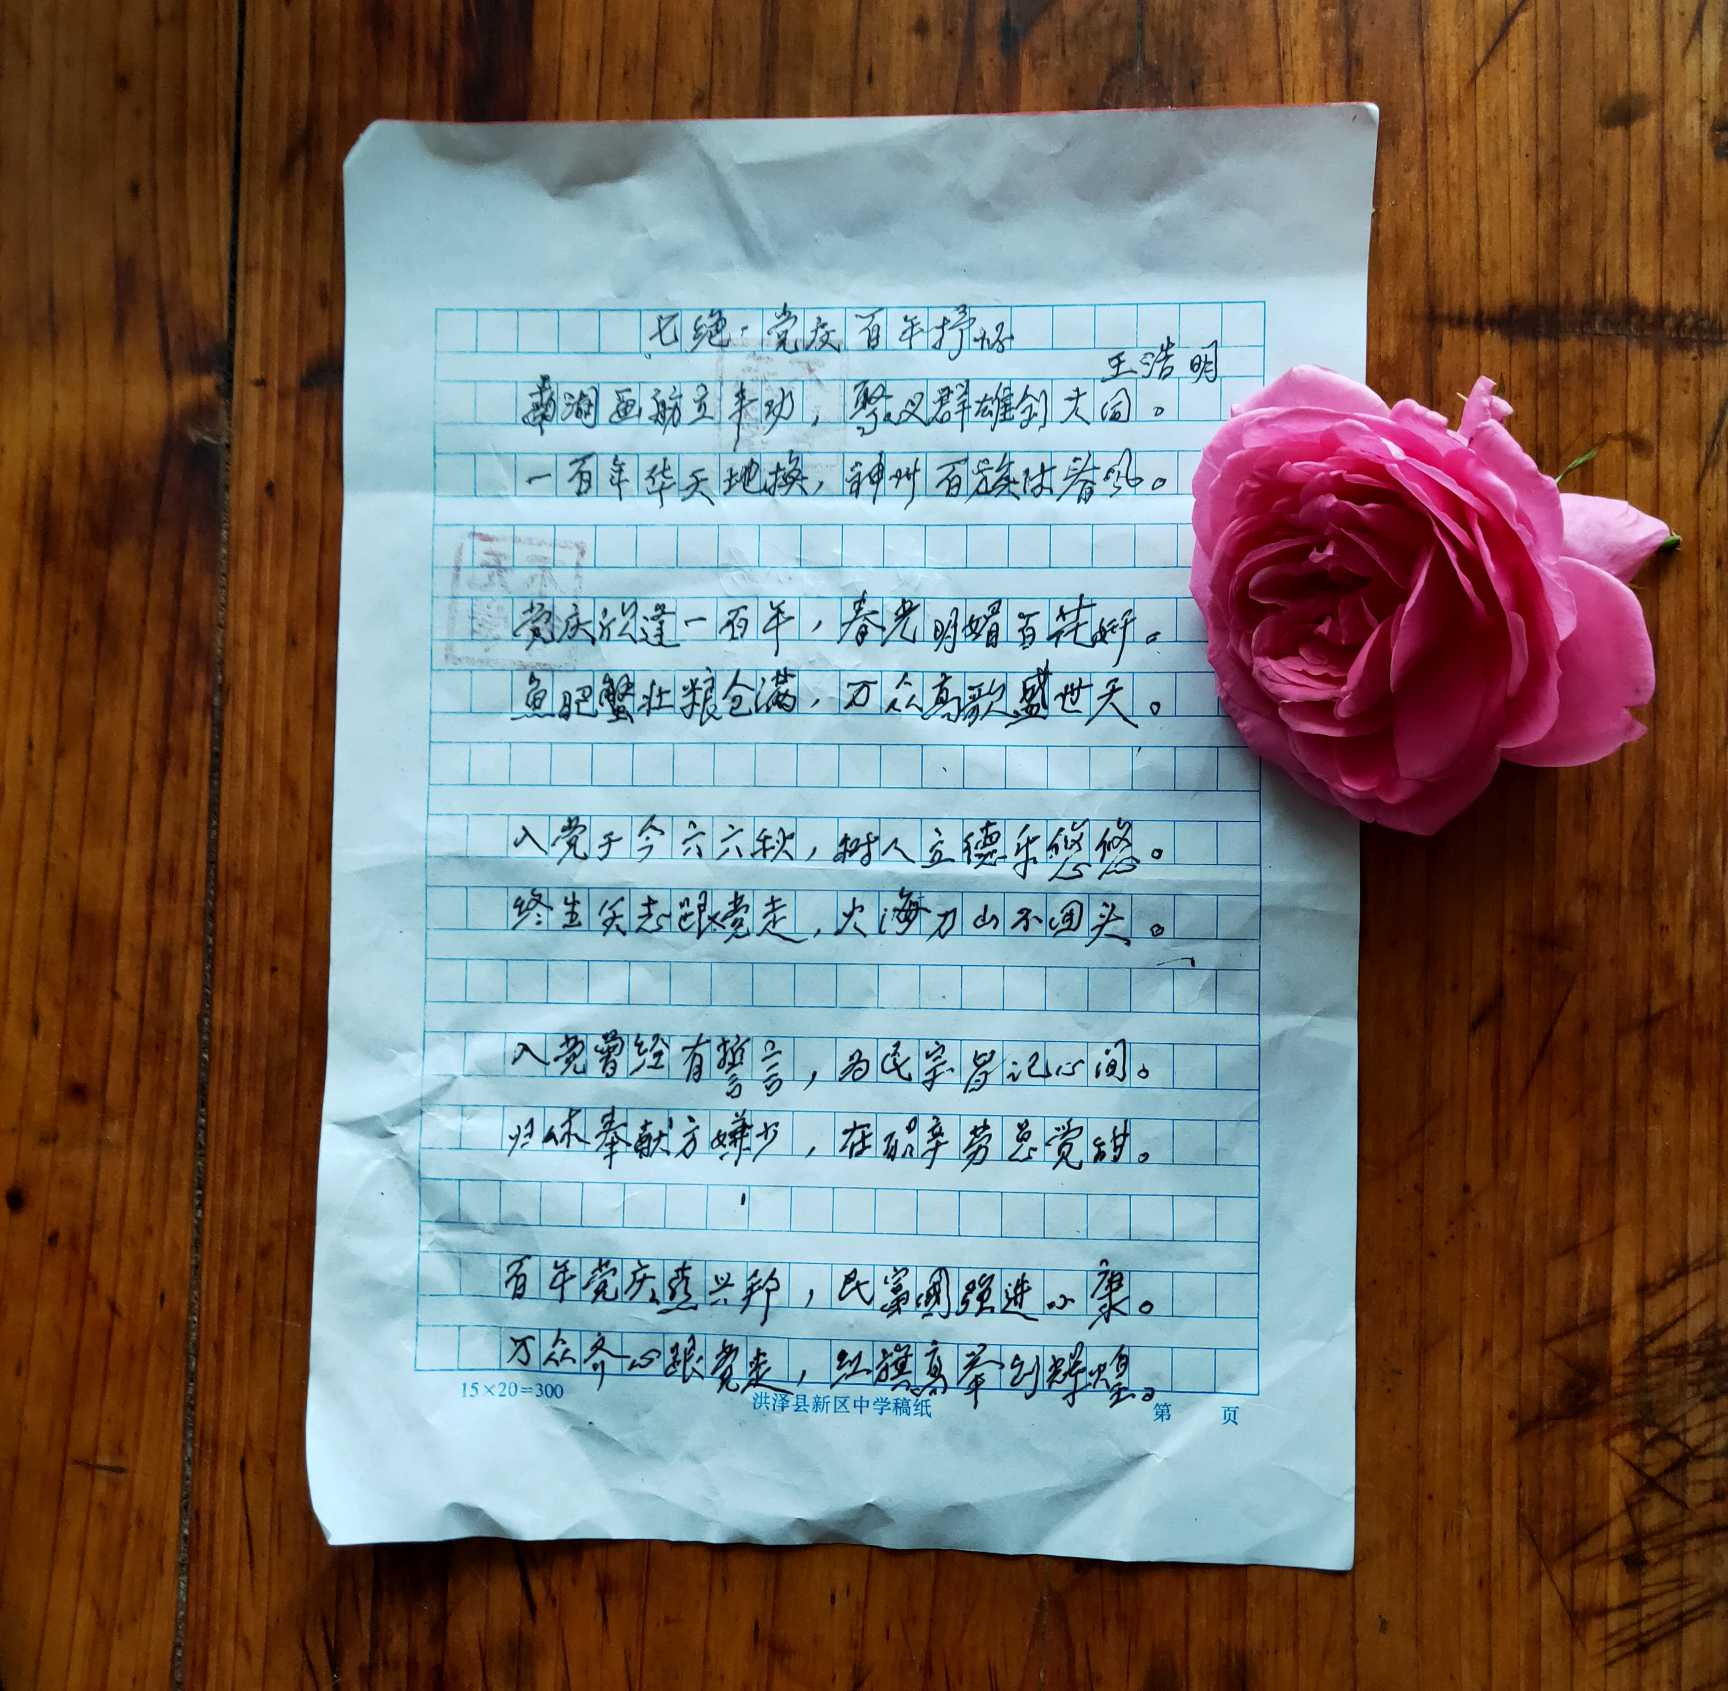 七绝·党庆百年抒怀
王浩明
南湖画舫立丰功，聚义群雄剑大同。
一百年华天地换，神州百族沐春风。
党庆欣逢一百年，春光明媚百花妍。
鱼肥蟹壮粮仓满，万众高歌盛世天。
入党于今六六秋，树人立德乐悠悠。
终生矢志跟党走，火海刀山不回头。
入党曾经有誓言，为民宗旨记心间。
归休奉献方嫌少，在职辛劳总觉甜。
百年党庆喜兴邦，民富国强进小康。
万众齐心跟党走，红旗高举创辉煌。
15×20=300
洪泽县新区中学稿纸
第 页